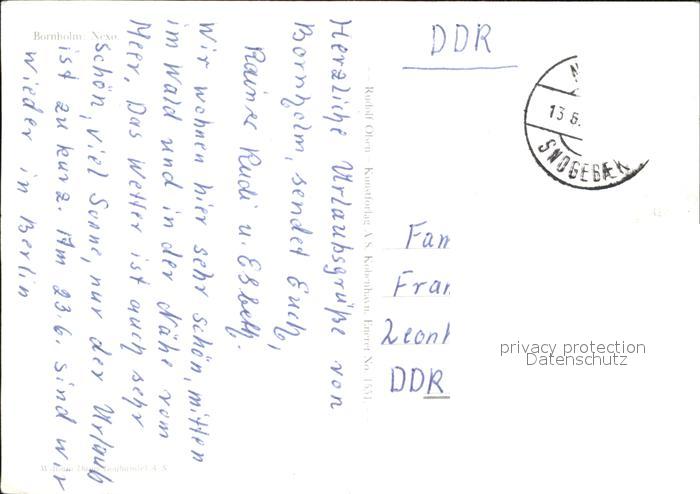 Bornholm: Nexø.
Herzliche Urlaubsgrüße von
Bornholm, sendet Euch,
Rainer Rudi u. Elsbeth.
Wir wohnen hier sehr schön, mitten
im Wald und in der Nähe vom
Meer. Das Wetter ist auch sehr
schön, viel Sonne, nur der Urlaub
ist zu kurz. Am 23.6. sind wir
wieder in Berlin
Rudolf Olsen - Kunstforlag A/S. København. Eneret No.
DDR
13 6.
SNOGEBÆK
Fam
Fran
Leon
DDR
privacy protection
Datenschutz